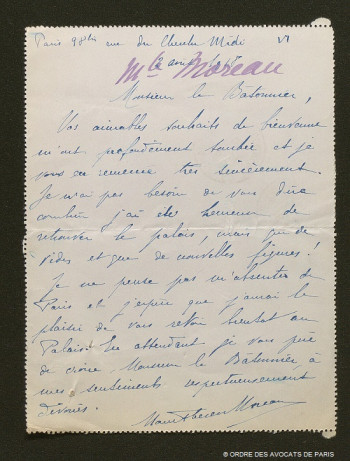 Paris 98bis rue du Cherche Midi VI
Mlle Moreau
Monsieur le Bâtonnier,
Vos aimables souhaits de bienvenue
m'ont profondément touchée et je
vous en remercie très sincèrement.
Je n'ai pas besoin de vous dire
combien j'ai été heureuse de
retrouver le palais, mais que de
vides et que de nouvelles figures !
Je ne pense pas m'absenter de
Paris et j'espère que j'aurai le
plaisir de vous revoir bientôt au
Palais. En attendant je vous prie
de croire Monsieur le Bâtonnier à
mes sentiments respectueusement
dévoués.
Moreau
© ORDRE DES AVOCATS DE PARIS